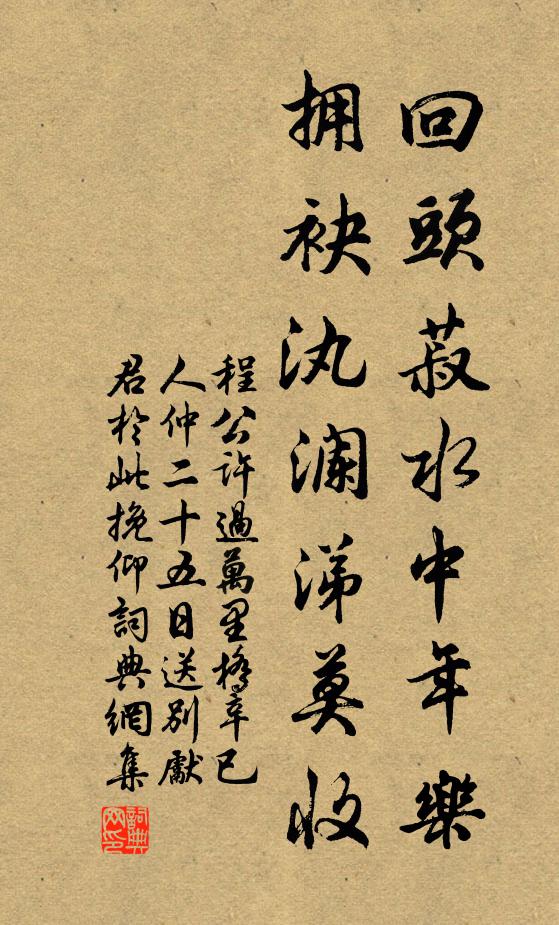 回頭菽水中年樂
拥袂汍澜涕莫收
程公许過萬里橋辛巳
人仲二十五日送别獻
君於此挽仰詞典網集
詞典网印